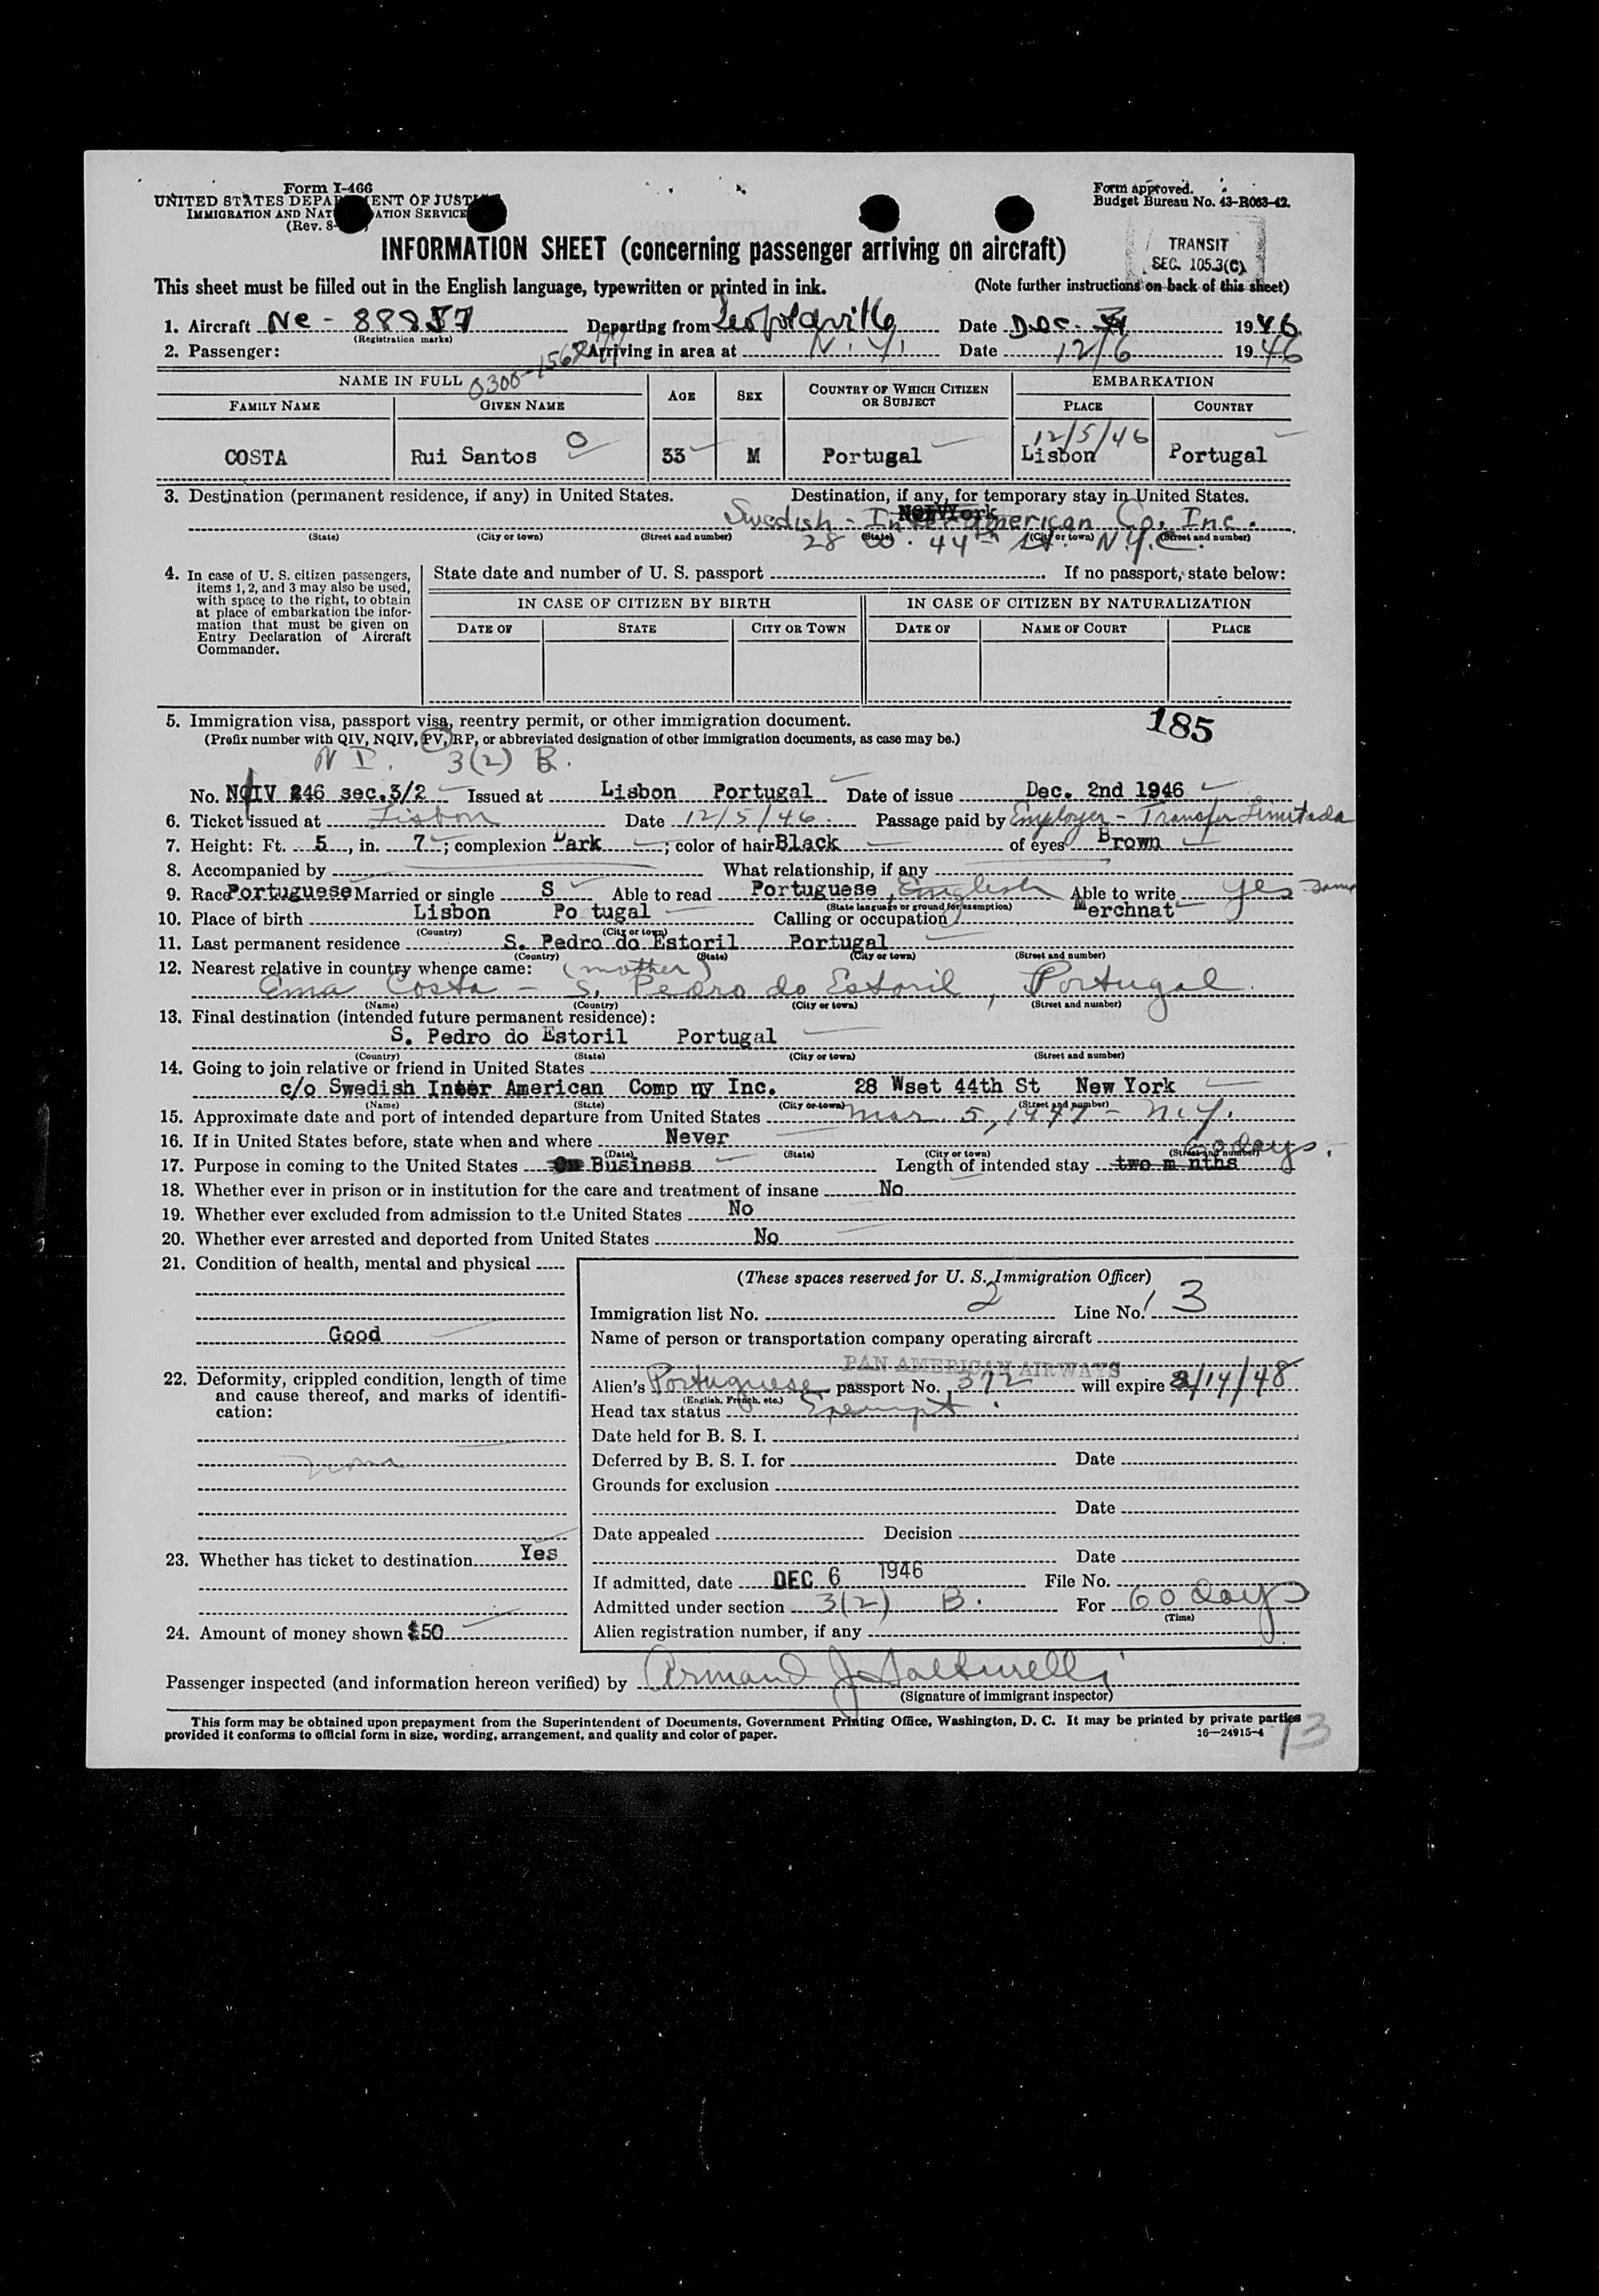 Form I-466
UNITED STATES DEPA ENT OF JUST
IMMIGRATION AND NAT ATION SERVICE
(Rev. 8-
Form approved.
Budget Bureau No. 43-R063-42.
INFORMATION SHEET (concerning passenger arriving on aircraft)
TRANSIT
SEC. 105.3(C)
This sheet must be filled out in the English language, typewritten or printed in ink. (Note further instructions on back of this sheet)
1. Aircraft Nc - 88857 Departing from Leopoldville Date Dec. 1946
(Registration marks)
2. Passenger: Arriving in area at N.Y. Date 12/6 1946
0300-
NAME IN FULL AGE SEX COUNTRY OF WHICH CITIZEN OR SUBJECT EMBARKATION
FAMILY NAME GIVEN NAME PLACE COUNTRY
12/5/46
COSTA Rui Santos 33 M Portugal Lisbon Portugal
3. Destination (permanent residence, if any) in United States. Destination, if any, for temporary stay in United States.
New York
Swedish - Inter american Co. Inc.
(State) (City or town) (Street and number) (State) (City or town) (Street and number)
28 W. 44th St. N.Y.C.
4. In case of U. S. citizen passengers, items 1, 2, and 3 may also be used, with space to the right, to obtain at place of embarkation the information that must be given on Entry Declaration of Aircraft Commander.
State date and number of U. S. passport If no passport, state below:
IN CASE OF CITIZEN BY BIRTH IN CASE OF CITIZEN BY NATURALIZATION
DATE OF STATE CITY OR TOWN DATE OF NAME OF COURT PLACE
5. Immigration visa, passport visa, reentry permit, or other immigration document. 185
(Prefix number with QIV, NQIV, PV, RP, or abbreviated designation of other immigration documents, as case may be.)
N I. 3(2) B.
No. NQIV 246 sec.3/2 Issued at Lisbon Portugal Date of issue Dec. 2nd 1946
6. Ticket issued at Lisbon Date 12/5/46. Passage paid by Employer - Transfer Limitada
7. Height: Ft. 5, in. 7; complexion Dark; color of hair Black of eyes Brown
8. Accompanied by What relationship, if any
9. Race Portuguese Married or single S Able to read Portuguese, English Able to write yes same
(State language or ground for exemption)
10. Place of birth Lisbon Po tugal Calling or occupation Merchnat
(Country) (City or town)
11. Last permanent residence S. Pedro do Estoril Portugal
(Country) (State) (City or town) (Street and number)
12. Nearest relative in country whence came: (mother)
Ema Costa - S. Pedro do Estoril, Portugal.
(Name) (Country) (City or town) (Street and number)
13. Final destination (intended future permanent residence):
S. Pedro do Estoril Portugal
(Country) (State) (City or town) (Street and number)
14. Going to join relative or friend in United States
c/o Swedish Inter American Comp ny Inc. 28 Wset 44th St New York
(Name) (State) (City or town) (Street and number)
15. Approximate date and port of intended departure from United States Mar. 5, 1947 - N.Y.
16. If in United States before, state when and where Never
(Date) (State) (City or town) (Street and number)
60 days.
17. Purpose in coming to the United States On Business Length of intended stay two m nths
18. Whether ever in prison or in institution for the care and treatment of insane No
19. Whether ever excluded from admission to the United States No
20. Whether ever arrested and deported from United States No
21. Condition of health, mental and physical
Good
22. Deformity, crippled condition, length of time and cause thereof, and marks of identification:
none
23. Whether has ticket to destination Yes
24. Amount of money shown $50
(These spaces reserved for U. S. Immigration Officer)
Immigration list No. 2 Line No. 3
Name of person or transportation company operating aircraft
PAN AMERICAN AIRWAYS
Alien's Portuguese passport No. 372 will expire 2/14/48
(English, French, etc.)
Head tax status Exempt.
Date held for B. S. I.
Deferred by B. S. I. for Date
Grounds for exclusion
Date
Date appealed Decision
Date
If admitted, date DEC 6 1946 File No.
Admitted under section 3(2) B. For 60 days
(Time)
Alien registration number, if any
Passenger inspected (and information hereon verified) by Armand J.
(Signature of immigrant inspector)
This form may be obtained upon prepayment from the Superintendent of Documents, Government Printing Office, Washington, D. C. It may be printed by private parties
provided it conforms to official form in size, wording, arrangement, and quality and color of paper. 16—24915-4
13